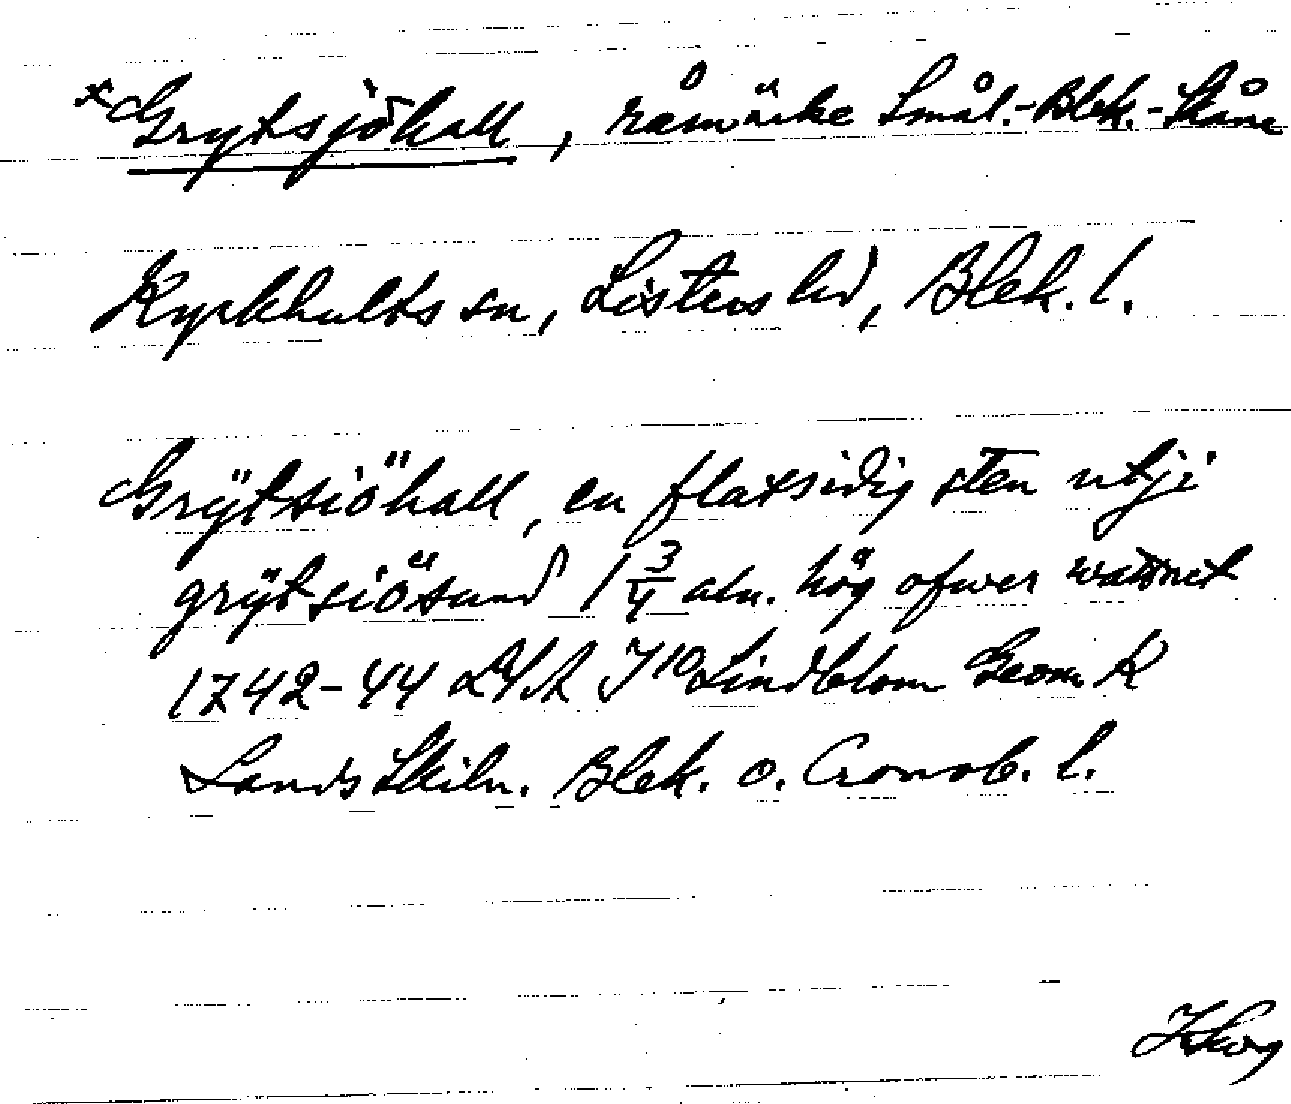 *Grytsjöhall, råmärke Smål.-Blek.-Skåne
Kyrkhults sn, Listers hd, Blek. l.
Grÿtsiöhall, en flatsidig sten utji
grÿtsiösund 1 3/4 aln. hög ofwer watnet
1742-44 LMA J10 Lindblom Geom K
Lands Skiln. Blek. o. Cronob. l.